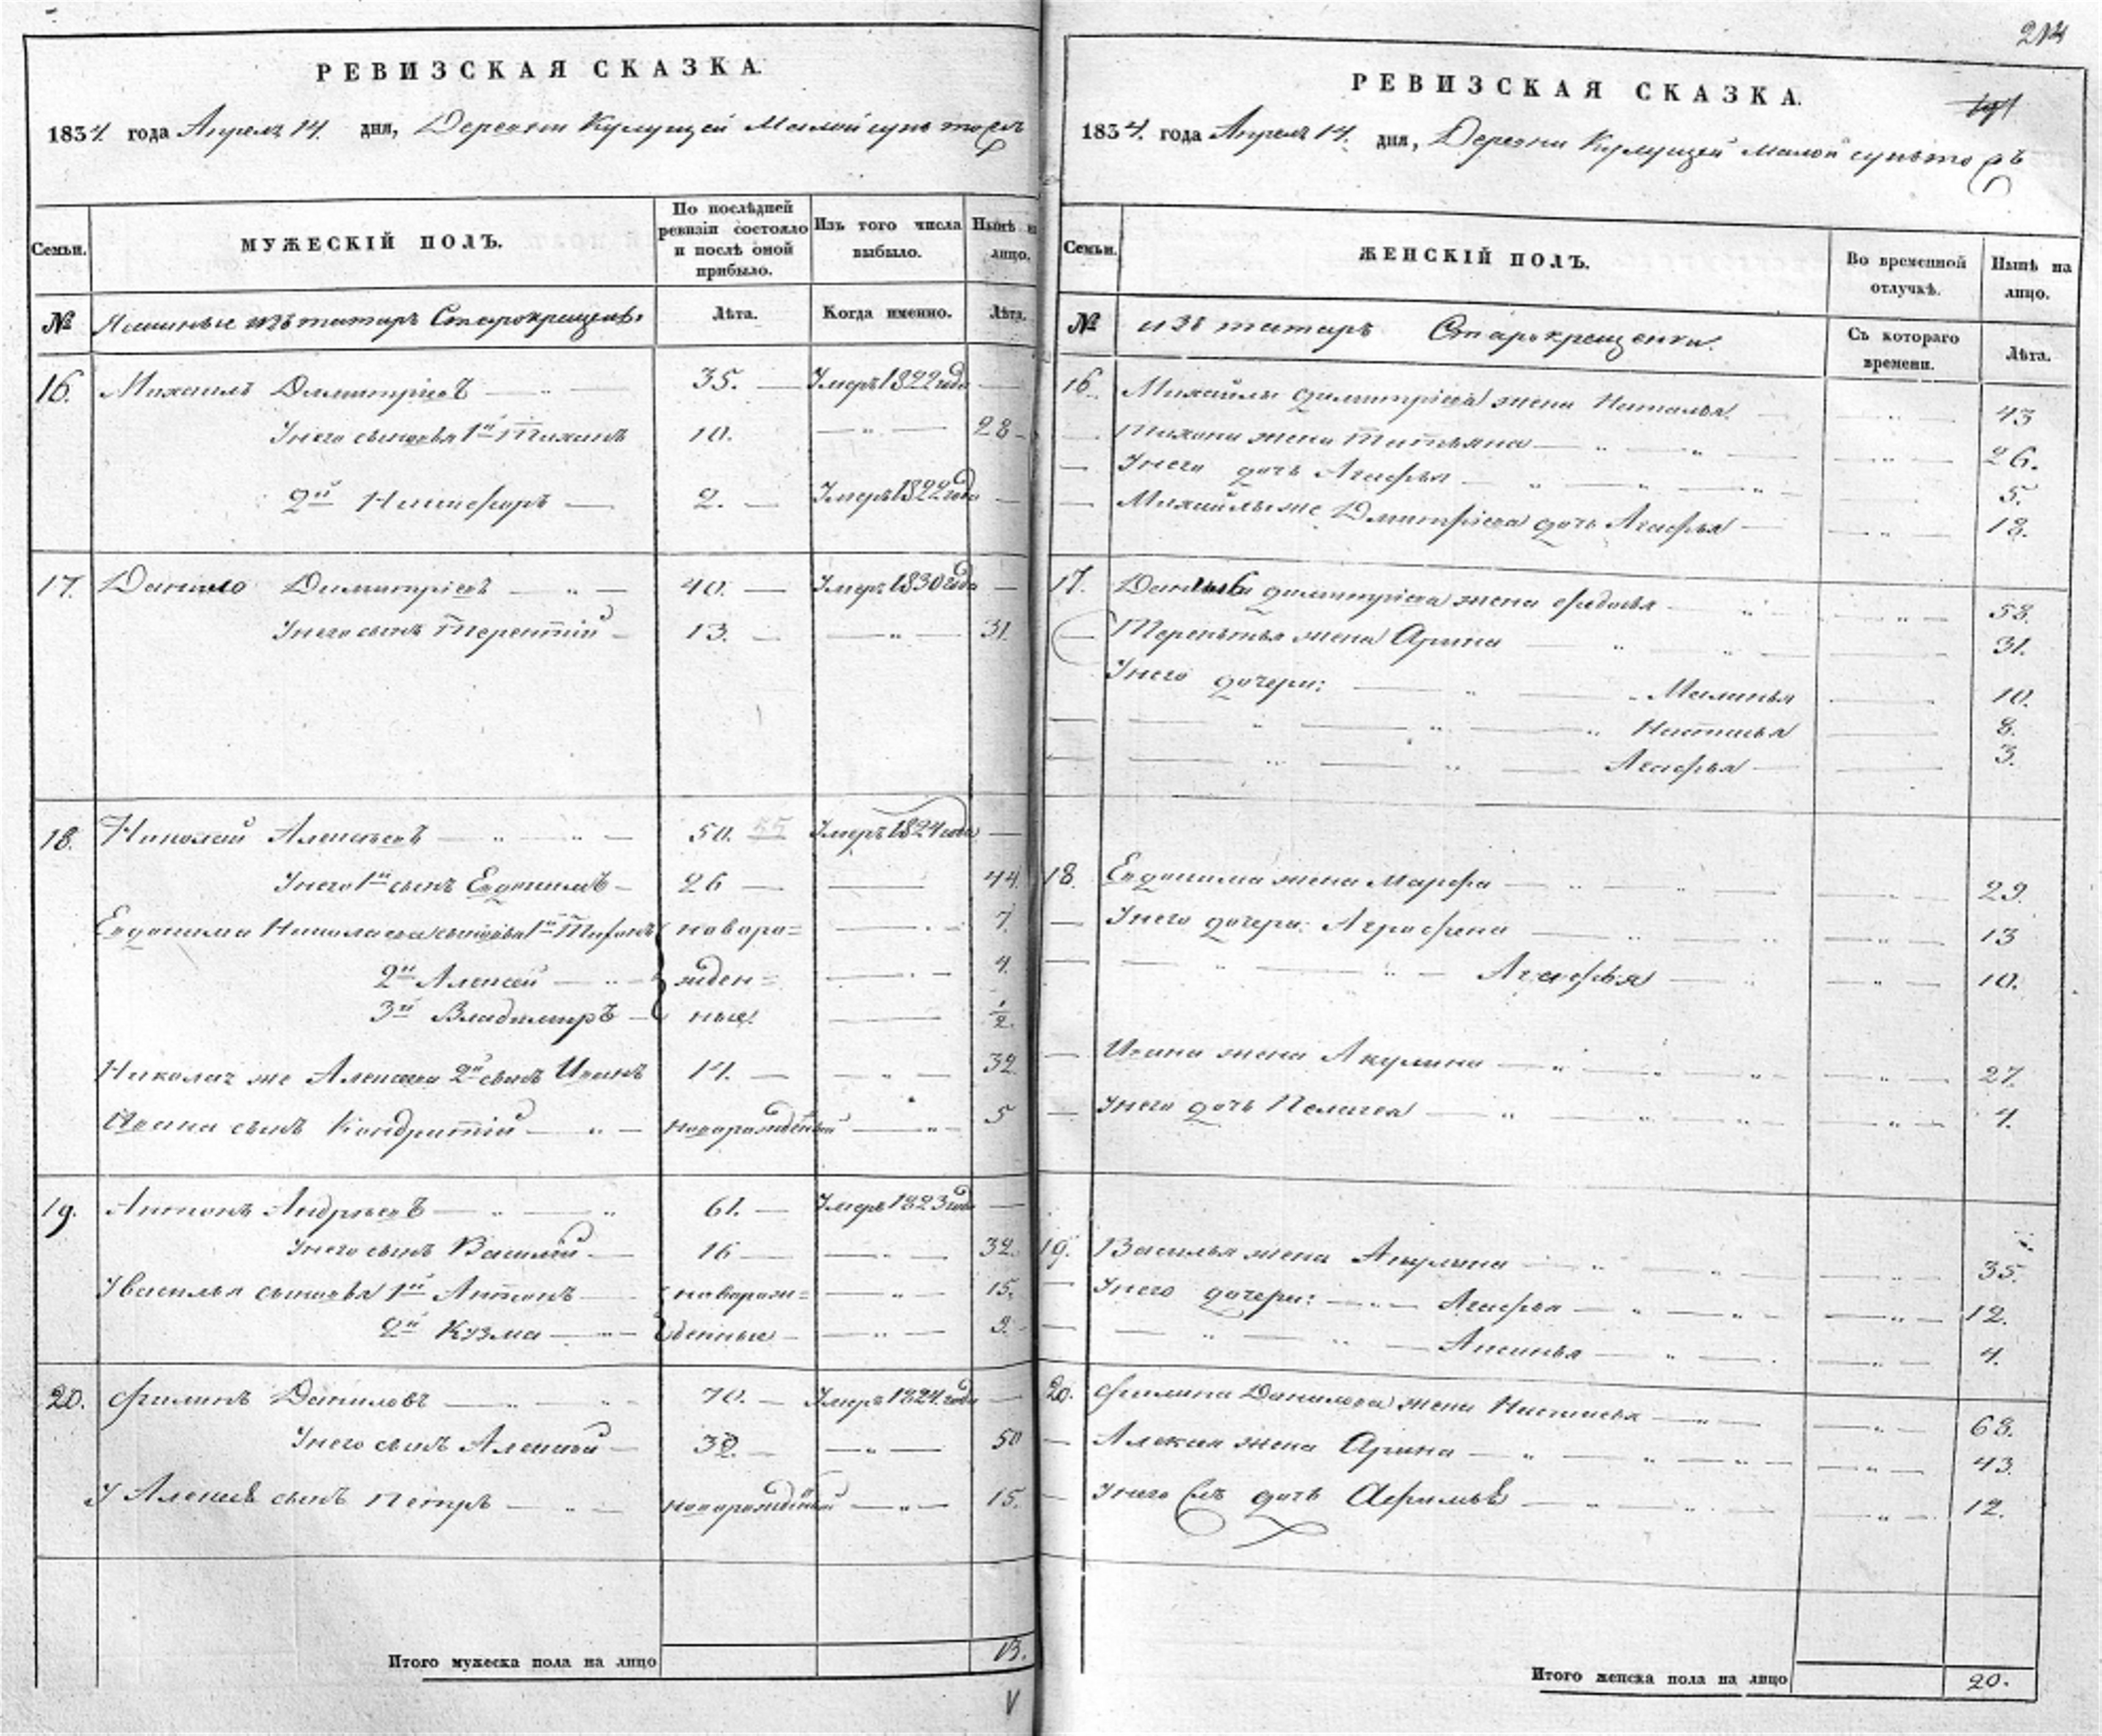 РЕВИЗСКАЯ СКАЗКА.
1834. года Апрель 14. дня, Деревни Кулущей Малой сунь тожъ
Семьи.
МУЖЕСКІЙ ПОЛЪ.
По послѣдней ревизіи состояло и послѣ оной прибыло.
Изъ того числа выбыло.
Нынѣ на лицо.
№ изъ татаръ Старокрещены
Лѣта. Когда именно. Лѣта.
16. Михаилъ Дмитріевъ 35. Умеръ 1822 года
У него сыновья 1й Тихонъ 10. 28
2й Никифоръ 2. Умеръ 1822 года
17. Данило Димитріевъ 40. Умеръ 1830 года
У него сынъ Терентій 13. 31.
18. Николай Алексѣевъ 50. 55 Умеръ 1824 года
У него 1й сынъ Евдокимъ 26 44.
Евдокима Николаева сыновья 1й новоро= 7.
2й Алексей жден= 4.
3й Владимиръ ные. 1/2.
Николая же Алексеева 2й сынъ Иванъ 14. 32
Ивана сынъ Кондратій новорожденный 5
19. Антонъ Андреевъ 61. Умеръ 1823 года
У него сынъ Василій 16 32.
У Василья сыновья 1й Антонъ новорож= 15.
2й Кузма денные
20. Филипъ Даниловъ 70. Умеръ 1824 года
У него сынъ Алексей 32. 50
У Алексея сынъ Петръ новорожденный 15.
Итого мужеска пола на лицо 13.
V
214
РЕВИЗСКАЯ СКАЗКА.
1834. года Апрель 14. дня, Деревни Кулущей Малой сунь тожъ
Семьи.
ЖЕНСКІЙ ПОЛЪ.
Во временной отлучкѣ.
Нынѣ на лицо.
№ изъ татаръ Старокрещенки.
Съ котораго времени. Лѣта.
16. Михайлы Димитріева жена Наталья 43
Тихона жена Татьяна 26.
У него дочь Агафья 5.
Михайлы же Дмитріева дочь Агафья 18.
17. Данилы Димитріева жена Федосья 58.
Терентья жена Арина 31.
У него дочери: Маланья 10.
Настасья 8.
Агафья 3.
18. Евдокима жена Марфа 29.
У него дочери: Аграфена 13
Агафья 10.
Ивана жена Акулина 27.
У него дочь Пелагея 4.
19. Василья жена Акулина 35.
У него дочери: Агафья 12.
Аксинья 4.
20. Филипа Данилова жена Настасья 68.
Алексея жена Арина 43.
У него съ дочь Афимья 12.
Итого женска пола на лицо 20.